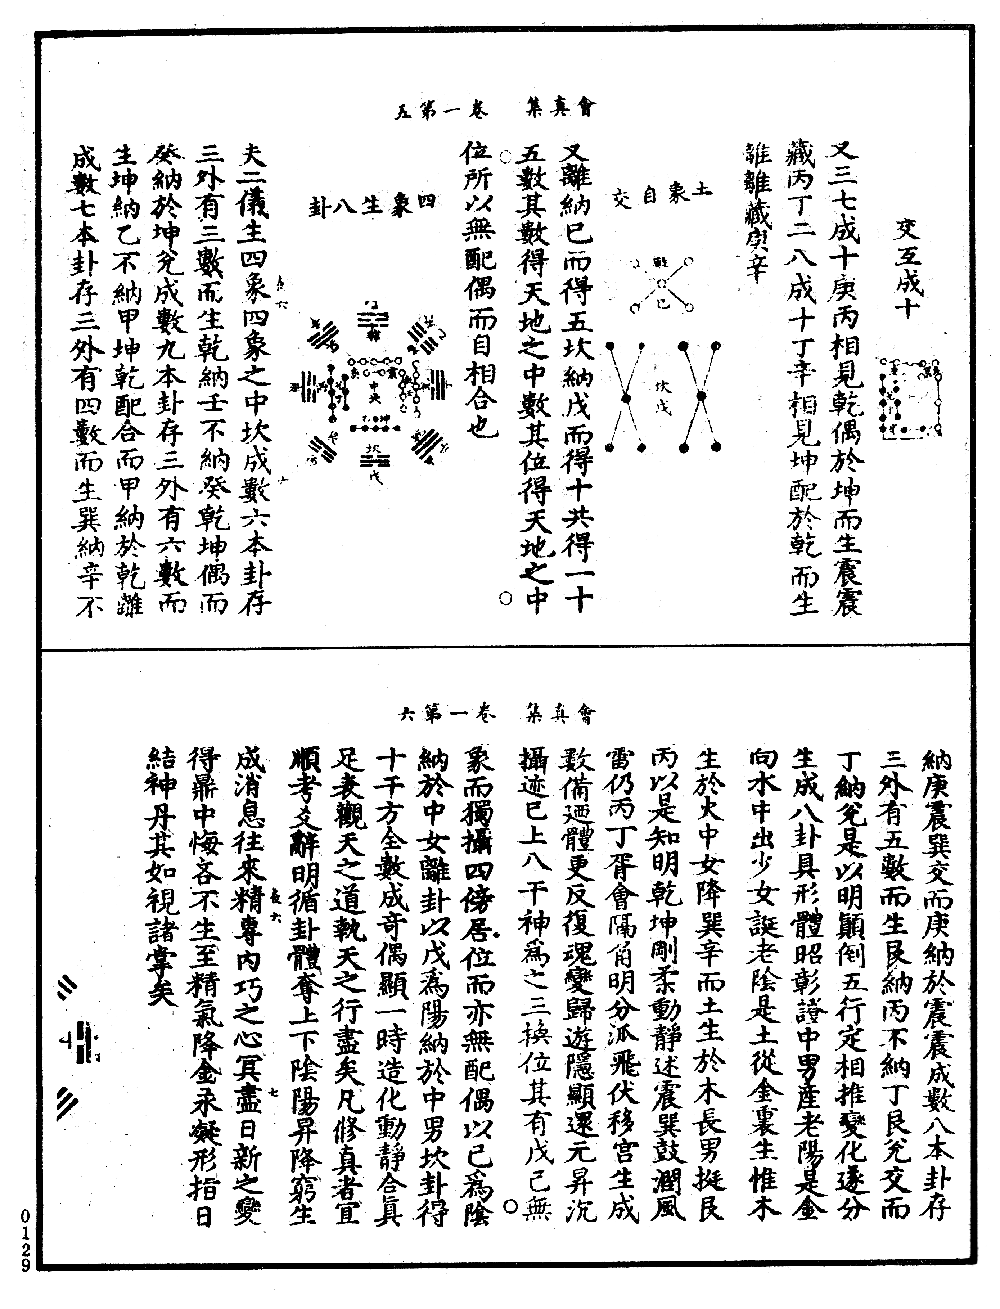 會真集　卷一第五
交互成十
又三七成十庚丙相見乾偶於坤而生震震
藏丙丁二八成十丁辛相見坤配於乾而生
離離藏庚辛
土象自交
戊
己
坎戊
又離納己而得五坎納戊而得十共得一十
五數其數得天地之中數其位得天地之中
位所以無配偶而自相合也
四象生八卦
中央
離
震
坤
坎
戊
夫二儀生四象四象之中坎成數六本卦存
三外有三數而生乾納壬不納癸乾坤偶而
癸納於坤兌成數九本卦存三外有六數而
生坤納乙不納甲坤乾配合而甲納於乾離
成數七本卦存三外有四數而生巽納辛不
會真集　卷一第六
納庚震巽交而庚納於震震成數八本卦存
三外有五數而生艮納丙不納丁艮兌交而
丁納兌是以明顛倒五行定相推變化逐分
生成八卦具形體昭彰證中男產老陽是金
向水中出少女誕老陰是土從金裏生惟木
生於火中女降巽辛而土生於木長男挺艮
丙以是知明乾坤剛柔動靜述震巽鼓潤風
雷仍丙丁胥會隔角明分派飛伏移宮生成
數備迴體更反復魂變歸遊隱顯還元昇沉
攝迹已上八干神為之三換位其有戊己無
象而獨攝四傍居位而亦無配偶以己為陰
納於中女離卦以戊為陽納於中男坎卦得
十干方全數成奇偶顯一時造化動靜合真
足表觀天之道執天之行盡矣凡修真者宜
順考爻辭明循卦體奪上下陰陽昇降窮生
成消息往來精專內巧之心冥盡日新之變
得鼎中悔吝不生至精氣降金汞凝形指日
結神丹其如視諸掌矣
0129